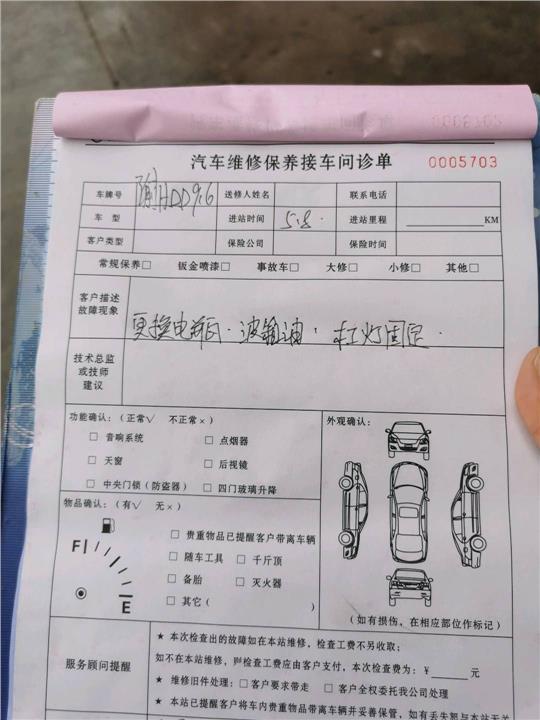 汽车维修保养接车问诊单 0005703
车牌号 送修人姓名 联系电话
车 型 进站时间 5.8. 进站里程 KM
客户类型 保险公司 保险时间
常规保养□ 钣金喷漆□ 事故车□ 大修□ 小修□ 其他□
客户描述
故障现象
更换电瓶 · 波输油 · 杠灯固定 ·
技术总监
或技师
建议
功能确认:(正常√ 不正常×)
□ 音响系统 □ 点烟器
□ 天窗 □ 后视镜
□ 中央门锁(防盗器) □ 四门玻璃升降
外观确认:
物品确认:(有√ 无×)
□ 贵重物品已提醒客户带离车辆
□ 随车工具 □ 千斤顶
□ 备胎 □ 灭火器
□ 其它( )
F
E
(如有损伤,在相应部位作标记)
服务顾问提醒
★ 本次检查出的故障如在本站维修,检查工费不另收取;
如不在本站维修,则检查工费应由客户支付,本次检查费为:¥ 元
★ 维修旧件处理:□ 客户要求带走 □ 客户全权委托我公司处理
★ 本站已提醒客户将车内贵重物品带离车辆并妥善保管,如有丢失恕与本站无关